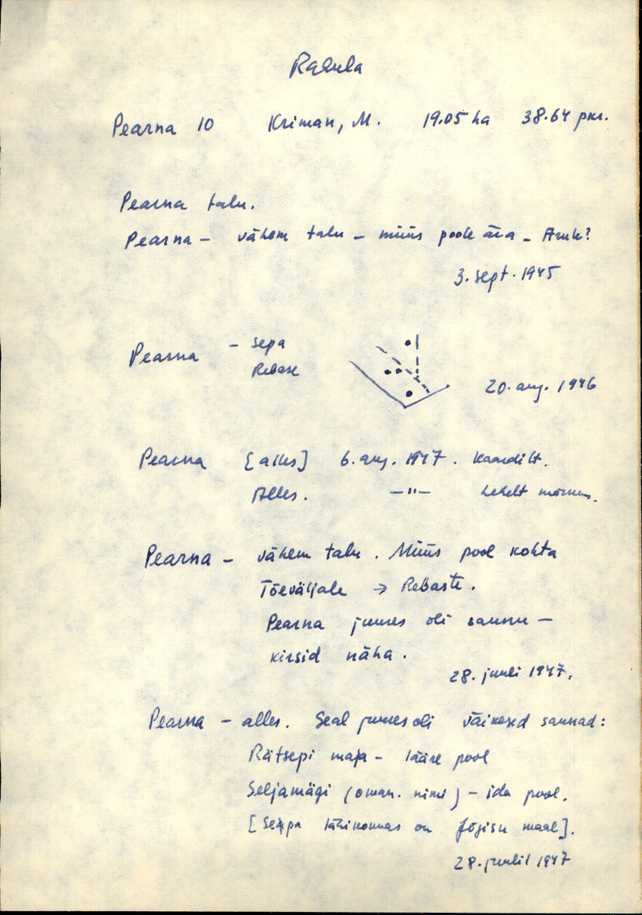 Rabula
Pearna 10 Kriman, M. 19.05 ha 38.64 pkr.
Pearna talu.
Pearna – vähem talu – müüs poole ära – Aruk?
3. sept. 1945
Pearna – sepa
Rebase
20. aug. 1946
Pearna [alles] 6. aug. 1947. Kaardilt.
Alles. –"– lehelt märkus.
Pearna – vähem talu. Müüs pool kohta
Tõeväljale → Rebaste.
Pearna juures oli saunu –
kirsid näha.
28. juuli 1947.
Pearna – alles. Seal juures oli väikesed saunad:
Rätsepi maja – lääne pool
Seljamägi (oman. nimi) – ida pool.
[Seapa lähikonnas on Jõgisu maal].
28. juulil 1947